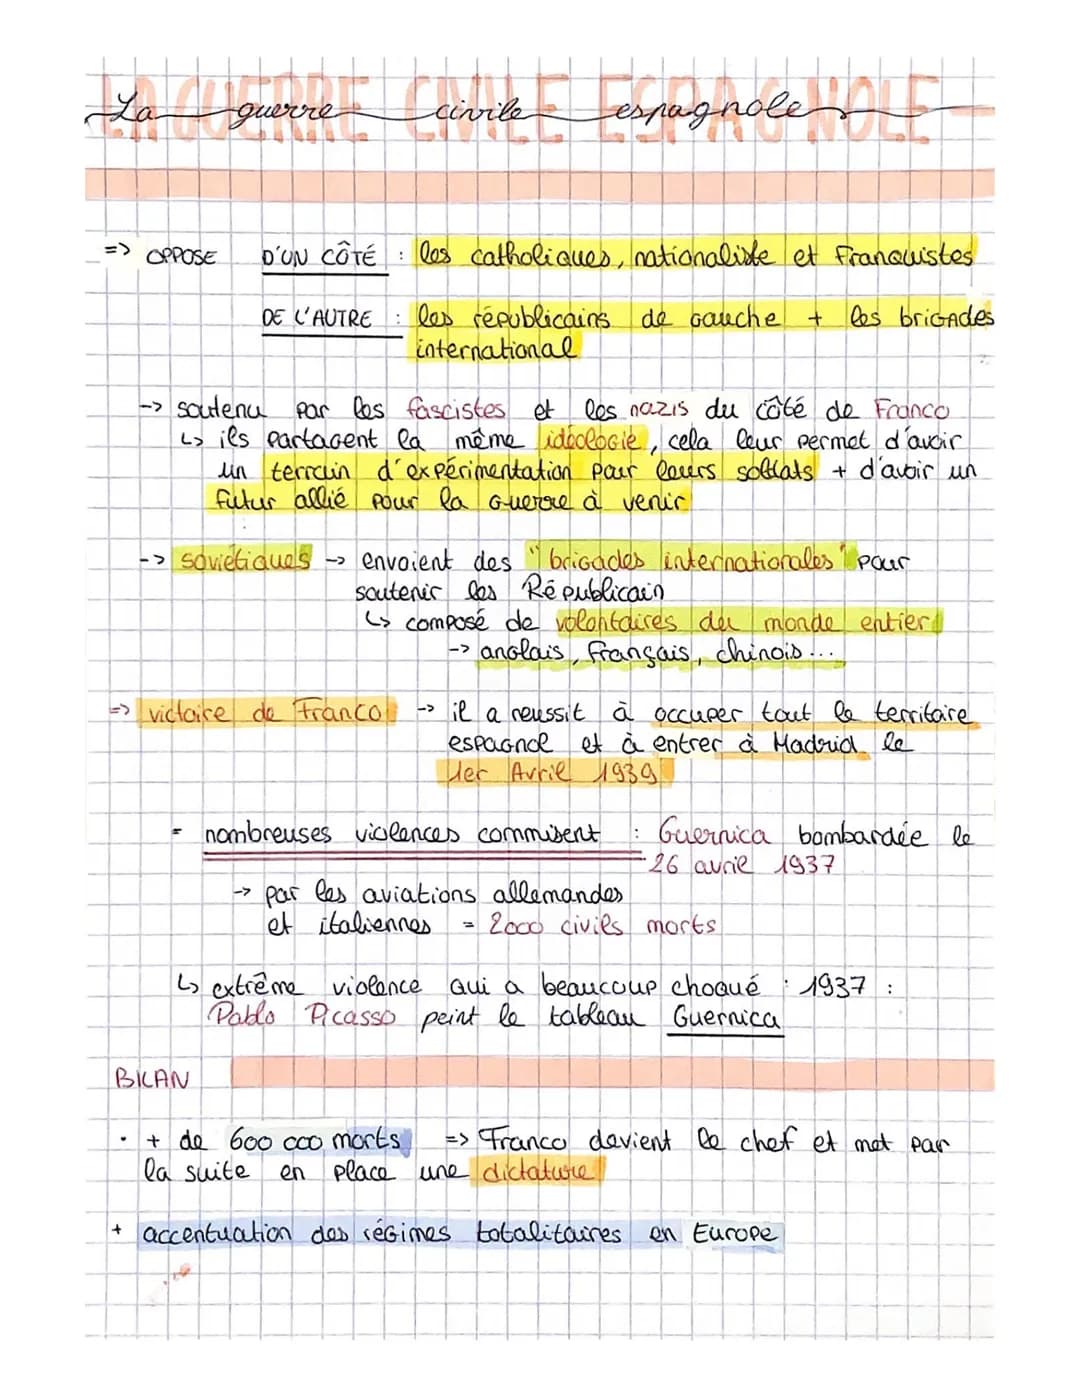 LA GUERRE CIVILE ESPAGNOLE
La guerre civile espagnole
=> OPPOSE D'UN CÔTÉ : les catholiques, nationaliste et Franquistes
DE L'AUTRE : les républicains de gauche + les brigades
international
-> soutenu par les fascistes et les nazis du côté de Franco
↳ ils partagent la même idéologie, cela leur permet d'avoir
un terrain d'expérimentation pour leurs soldats + d'avoir un
futur allié pour la guerre à venir
-> soviétiques -> envoient des "brigades internationales" pour
soutenir les Républicain
↳ composé de volontaires du monde entier
-> anglais, français, chinois...
=> victoire de Franco -> il a reussit à occuper tout le territoire
espagnol et à entrer à Madrid le
1er Avril 1939
= nombreuses violences commisent : Guernica bombardée le
26 avril 1937
-> par les aviations allemandes
et italiennes = 2000 civils morts
↳ extrême violence qui a beaucoup choqué : 1937 :
Pablo Picasso peint le tableau Guernica
BILAN
· + de 600 000 morts => Franco devient le chef et met par
la suite en place une dictature
+ accentuation des régimes totalitaires en Europe